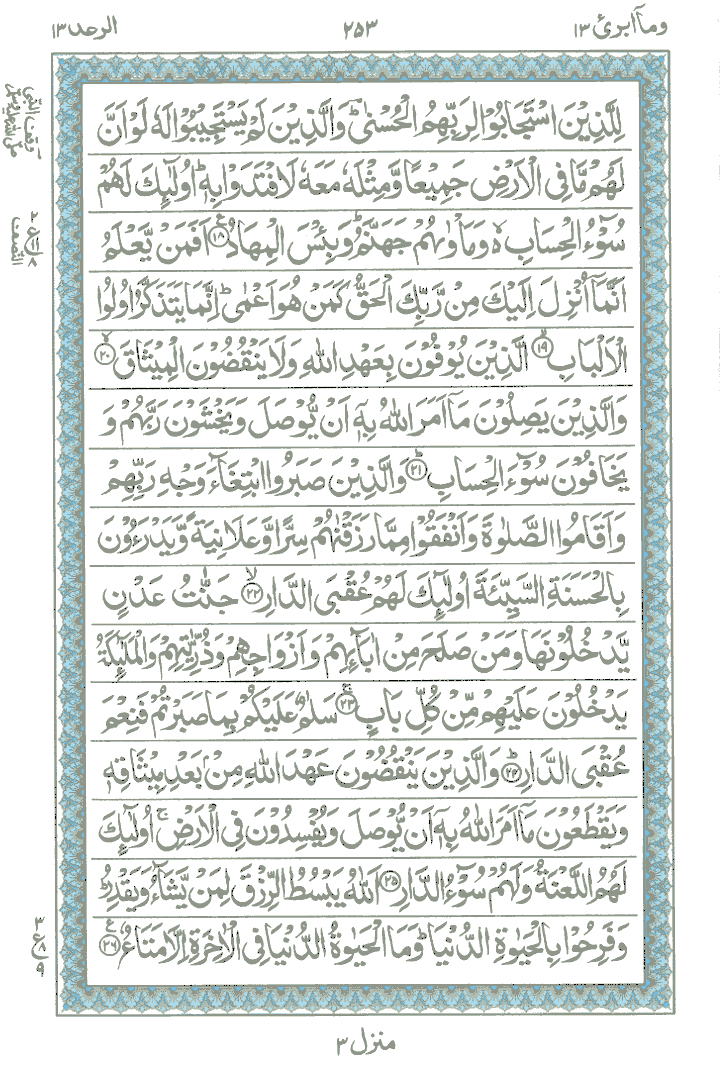 وما ابرئ ١٣
٢٥٣
الرعد ١٣
لِلَّذِيْنَ اسْتَجَابُوْا لِرَبِّهِمُ الْحُسْنٰىؔؕ وَالَّذِيْنَ لَمْ يَسْتَجِيْبُوْا لَهٗ لَوْ اَنَّ
لَهُمْ مَّا فِى الْاَرْضِ جَمِيْعًا وَّمِثْلَهٗ مَعَهٗ لَافْتَدَوْا بِهٖؕ اُولٰٓئِكَ لَهُمْ
سُوْٓءُ الْحِسَابِ ۙ وَمَاْوٰىهُمْ جَهَنَّمُؕ وَبِئْسَ الْمِهَادُ ﴿١٨﴾ اَفَمَنْ يَّعْلَمُ
اَنَّمَآ اُنْزِلَ اِلَيْكَ مِنْ رَّبِّكَ الْحَقُّ كَمَنْ هُوَ اَعْمٰىؕ اِنَّمَا يَتَذَكَّرُ اُولُوا
الْاَلْبَابِ ﴿١٩﴾ الَّذِيْنَ يُوْفُوْنَ بِعَهْدِ اللّٰهِ وَلَا يَنْقُضُوْنَ الْمِيْثَاقَ ﴿٢٠﴾
وَالَّذِيْنَ يَصِلُوْنَ مَآ اَمَرَ اللّٰهُ بِهٖٓ اَنْ يُّوْصَلَ وَيَخْشَوْنَ رَبَّهُمْ وَ
يَخَافُوْنَ سُوْٓءَ الْحِسَابِ ﴿٢١﴾ وَالَّذِيْنَ صَبَرُوا ابْتِغَآءَ وَجْهِ رَبِّهِمْ
وَاَقَامُوا الصَّلٰوةَ وَاَنْفَقُوْا مِمَّا رَزَقْنٰهُمْ سِرًّا وَّعَلَانِيَةً وَّيَدْرَءُوْنَ
بِالْحَسَنَةِ السَّيِّئَةَ اُولٰٓئِكَ لَهُمْ عُقْبَى الدَّارِ ﴿٢٢﴾ جَنّٰتُ عَدْنٍ
يَّدْخُلُوْنَهَا وَمَنْ صَلَحَ مِنْ اٰبَآئِهِمْ وَاَزْوَاجِهِمْ وَذُرِّيّٰتِهِمْ وَالْمَلٰٓئِكَةُ
يَدْخُلُوْنَ عَلَيْهِمْ مِّنْ كُلِّ بَابٍ ﴿٢٣﴾ سَلٰمٌ عَلَيْكُمْ بِمَا صَبَرْتُمْ فَنِعْمَ
عُقْبَى الدَّارِ ﴿٢٤﴾ وَالَّذِيْنَ يَنْقُضُوْنَ عَهْدَ اللّٰهِ مِنْۢ بَعْدِ مِيْثَاقِهٖ
وَيَقْطَعُوْنَ مَآ اَمَرَ اللّٰهُ بِهٖٓ اَنْ يُّوْصَلَ وَيُفْسِدُوْنَ فِى الْاَرْضِۙ اُولٰٓئِكَ
لَهُمُ اللَّعْنَةُ وَلَهُمْ سُوْٓءُ الدَّارِ ﴿٢٥﴾ اَللّٰهُ يَبْسُطُ الرِّزْقَ لِمَنْ يَّشَآءُ وَيَقْدِرُؕ
وَفَرِحُوْا بِالْحَيٰوةِ الدُّنْيَاؕ وَمَا الْحَيٰوةُ الدُّنْيَا فِى الْاٰخِرَةِ اِلَّا مَتَاعٌ ﴿٢٦﴾
وقف النبي صلى الله عليه وسلم
النصف
٣
ع
٨
٩
منزل ٣